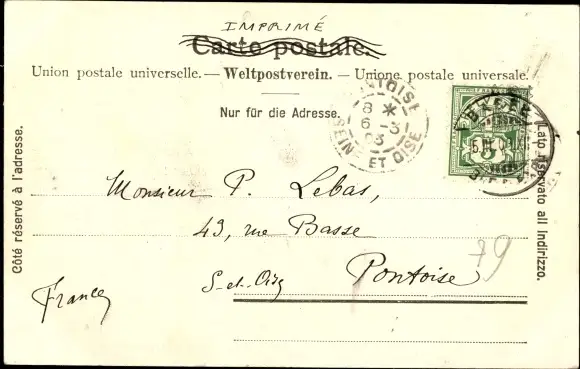 IMPRIMÉ
Carte postale.
Union postale universelle. — Weltpostverein. — Unione postale universale.
Nur für die Adresse.
Côté réservé à l'adresse.
Lato riservato all indirizzo.
PONTOISE
8 *
6 - 3
03
SEINE ET OISE
5
Monsieur P. Lebas,
43, rue Basse
Pontoise
S-et-Oise
France
79